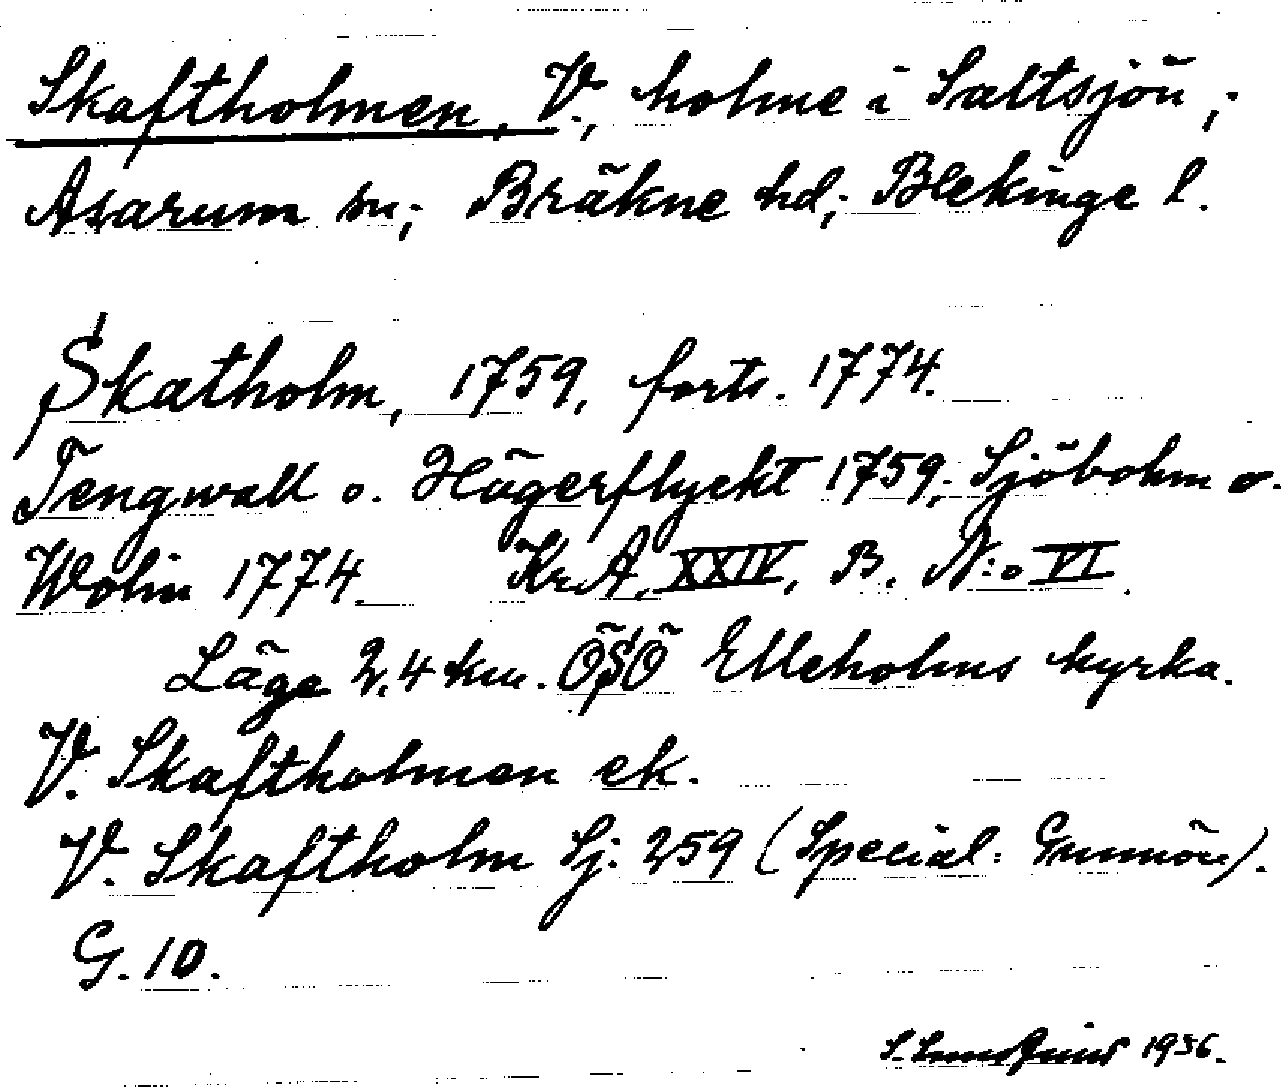 Skaftholmen, V., holme i Saltsjön,;
Asarum sn; Bräkne hd; Blekinge l.
Skatholm, 1759, forts. 1774.
Tengwall o. Hägerflyckt 1759; Sjöbohm o.
Wolin 1774. Kr.A. XXIV, B. N:o VI.
Läge 2,4 km. ÖSÖ Elleholms kyrka.
V. Skaftholmen ek.
V. Skaftholm Sj. 259 (Special: Gunnön).
G. 10.
1936.